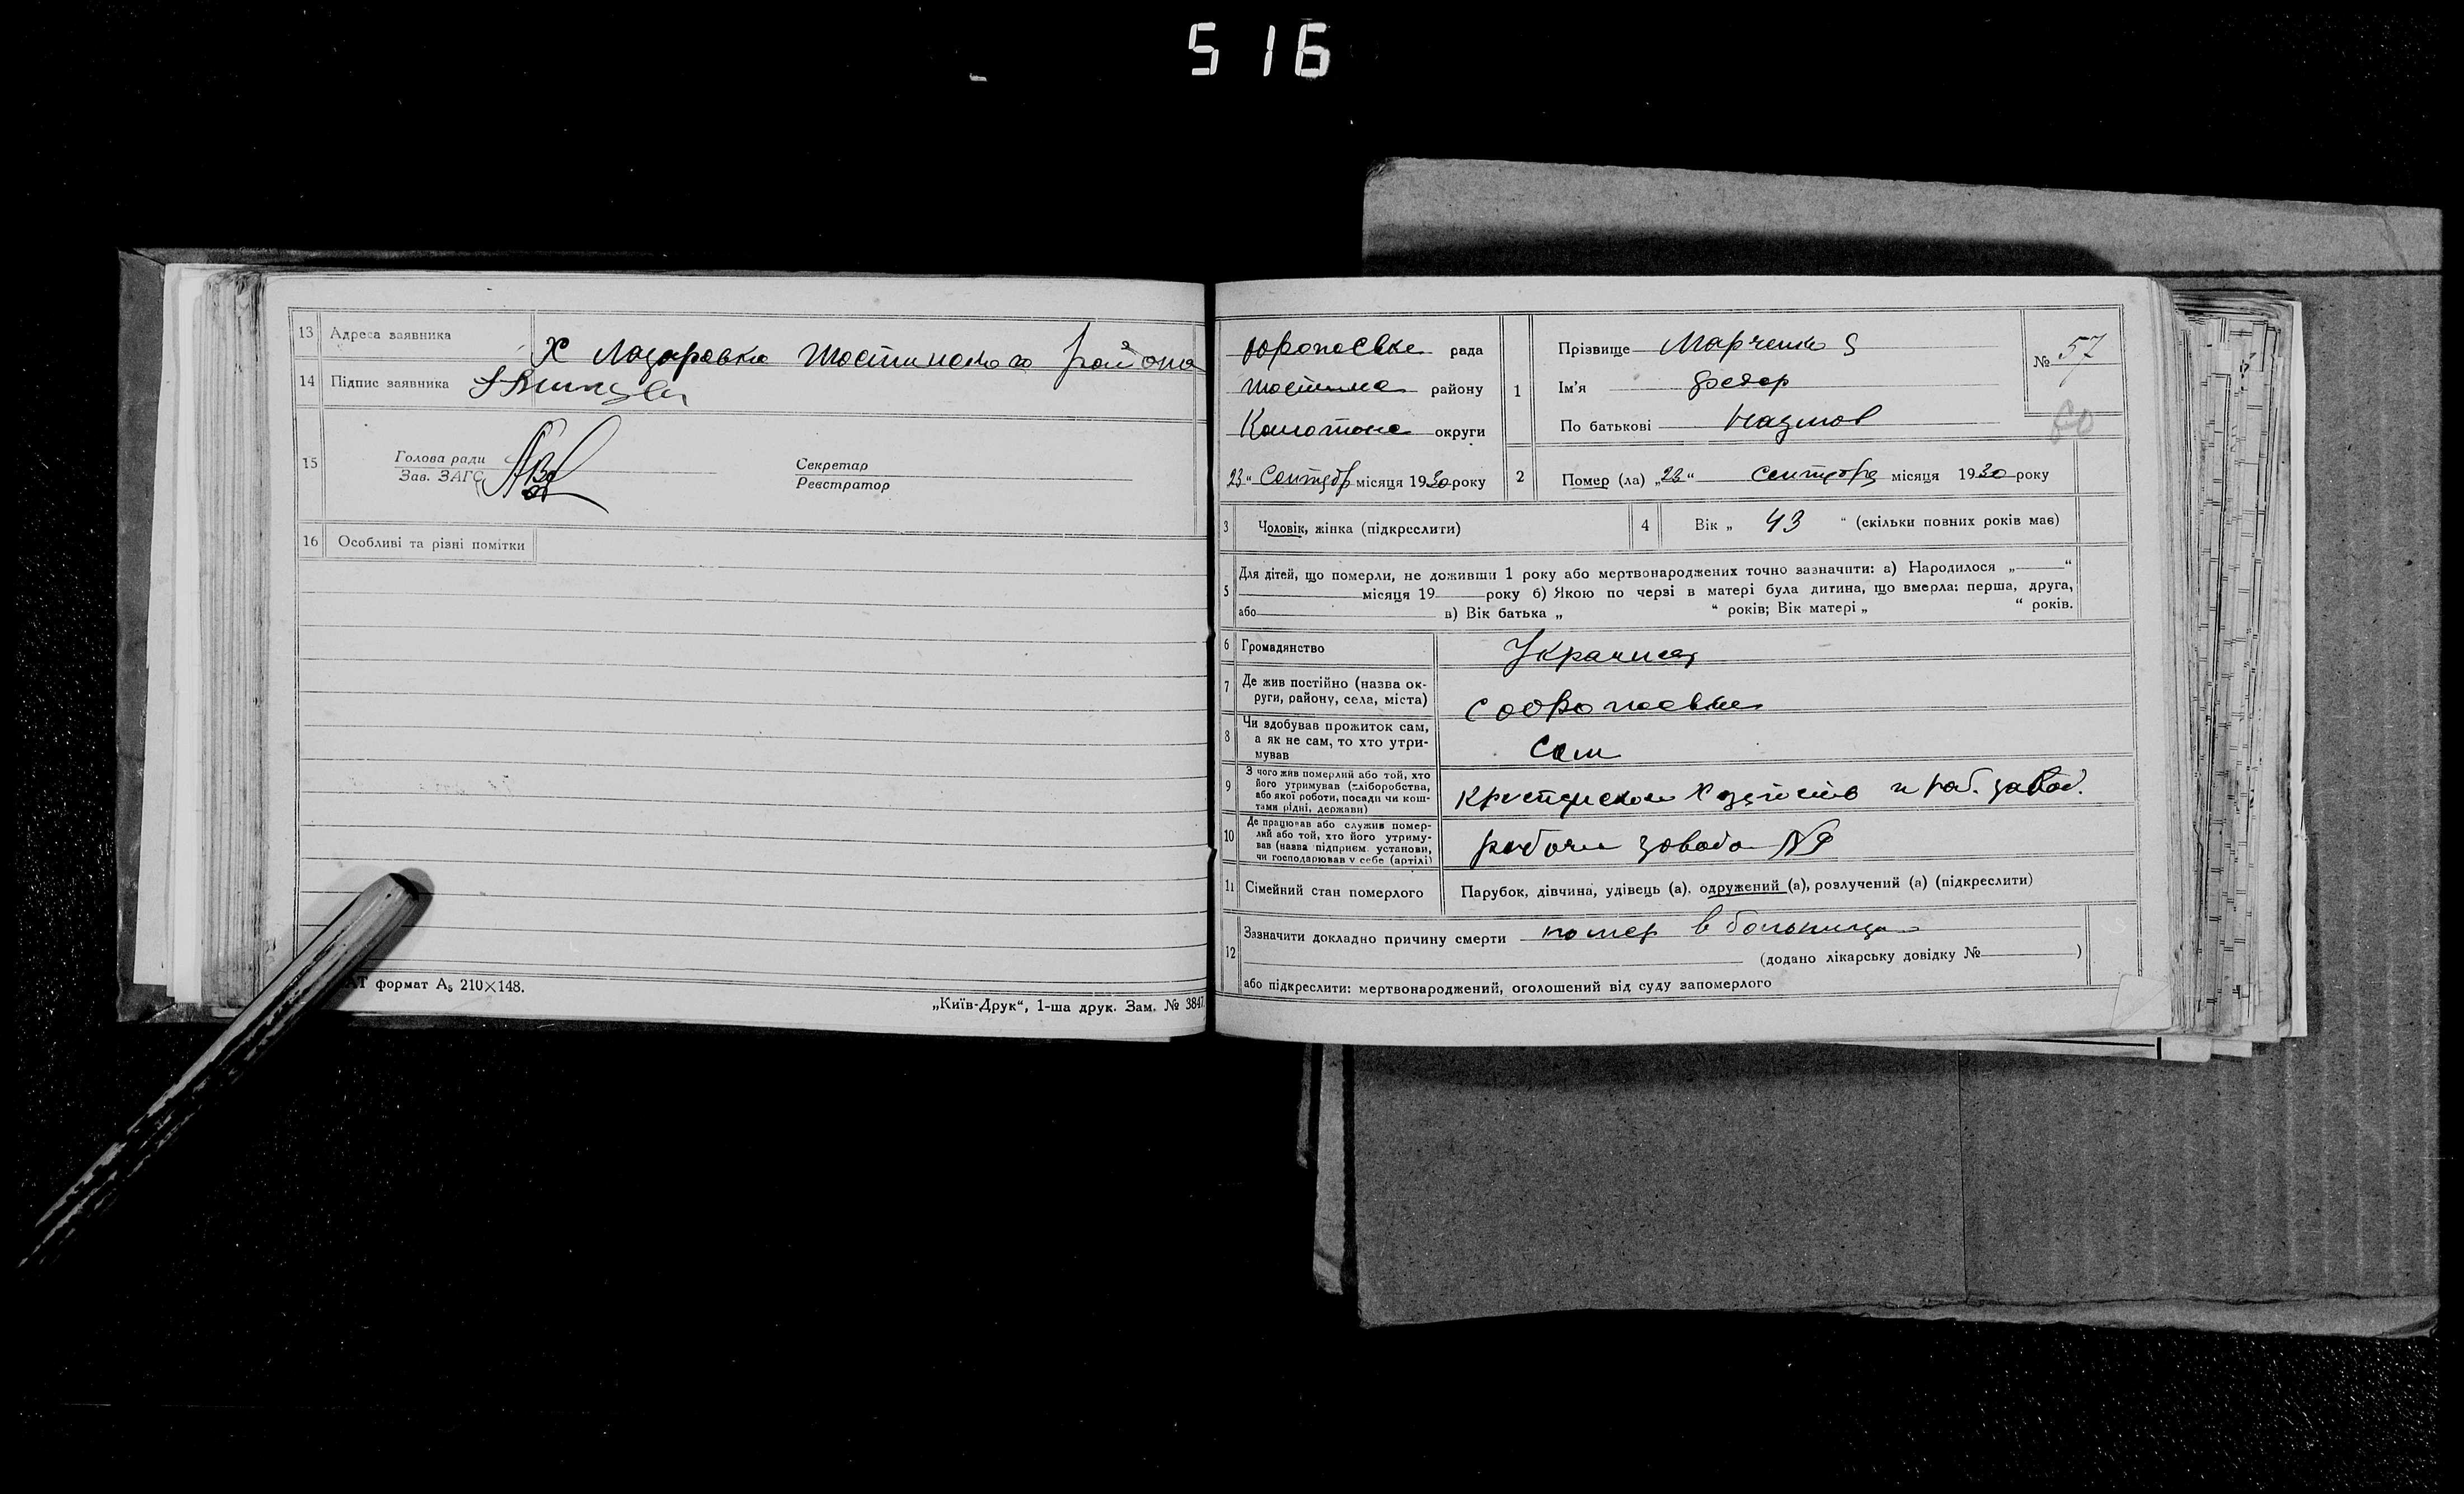 516
13 Адреса заявника Х Лазаровка Шостинского района
14 Підпис заявника
15 Голова ради
Зав. ЗАГС
Секретар
Реєстратор
16 Особливі та різні помітки
формат А₅ 210×148.
„Київ-Друк“, 1-ша друк. Зам. № 3847
рада
району
округи
23 “ місяця 1930 року
1 Прізвище Марченко
Ім’я Федор
По батькові Наумов
№ 57
60
2 Помер (ла) „ 23 “ сентября місяця 1930 року
3 Чоловік, жінка (підкреслити)
4 Вік „ 43 “ (скільки повних років має)
5 Для дітей, що померли, не доживши 1 року або мертвонароджених точно зазначити: а) Народилося „ “
місяця 19 року б) Якою по черзі в матері була дитина, що вмерла: перша, друга,
або в) Вік батька „ “ років; Вік матері „ “ років.
6 Громадянство
7 Де жив постійно (назва ок-
руги, району, села, міста)
8 Чи здобував прожиток сам,
а як не сам, то хто утри-
мував
сам
9 З чого жив померлий або той, хто
його утримував (хліборобства,
або якої роботи, посади чи кош-
тами рідні, держави)
и раб. завод.
10 Де працював або служив помер-
лий або той, хто його утриму-
вав (назва підприєм. установи,
чи господарював у себе (артілі)
завода № 9
11 Сімейний стан померлого Парубок, дівчина, удівець (а), одружений (а), розлучений (а) (підкреслити)
12 Зазначити докладно причину смерти помер в больнице
(додано лікарську довідку № )
або підкреслити: мертвонароджений, оголошений від суду запомерлого